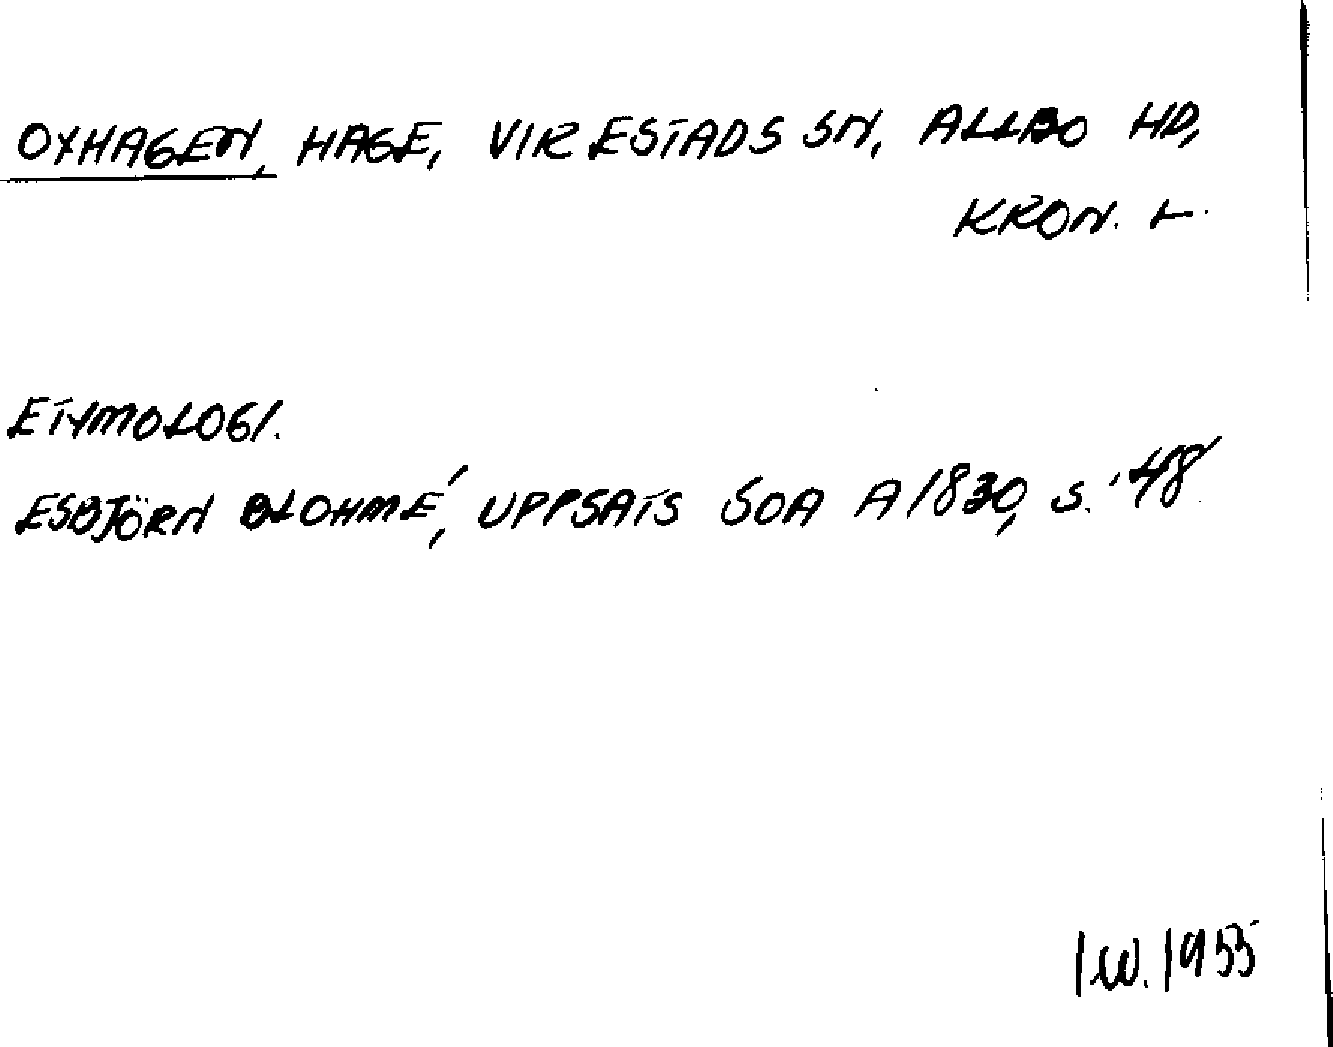 OXHAGEN, HAGE, VIRESTADS SN, ALLBO HD,
KRON. L.
ETYMOLOGI.
ESBJÖRN BLOHMÉ, UPPSATS SOA A1830, S. 48
IW. 1955